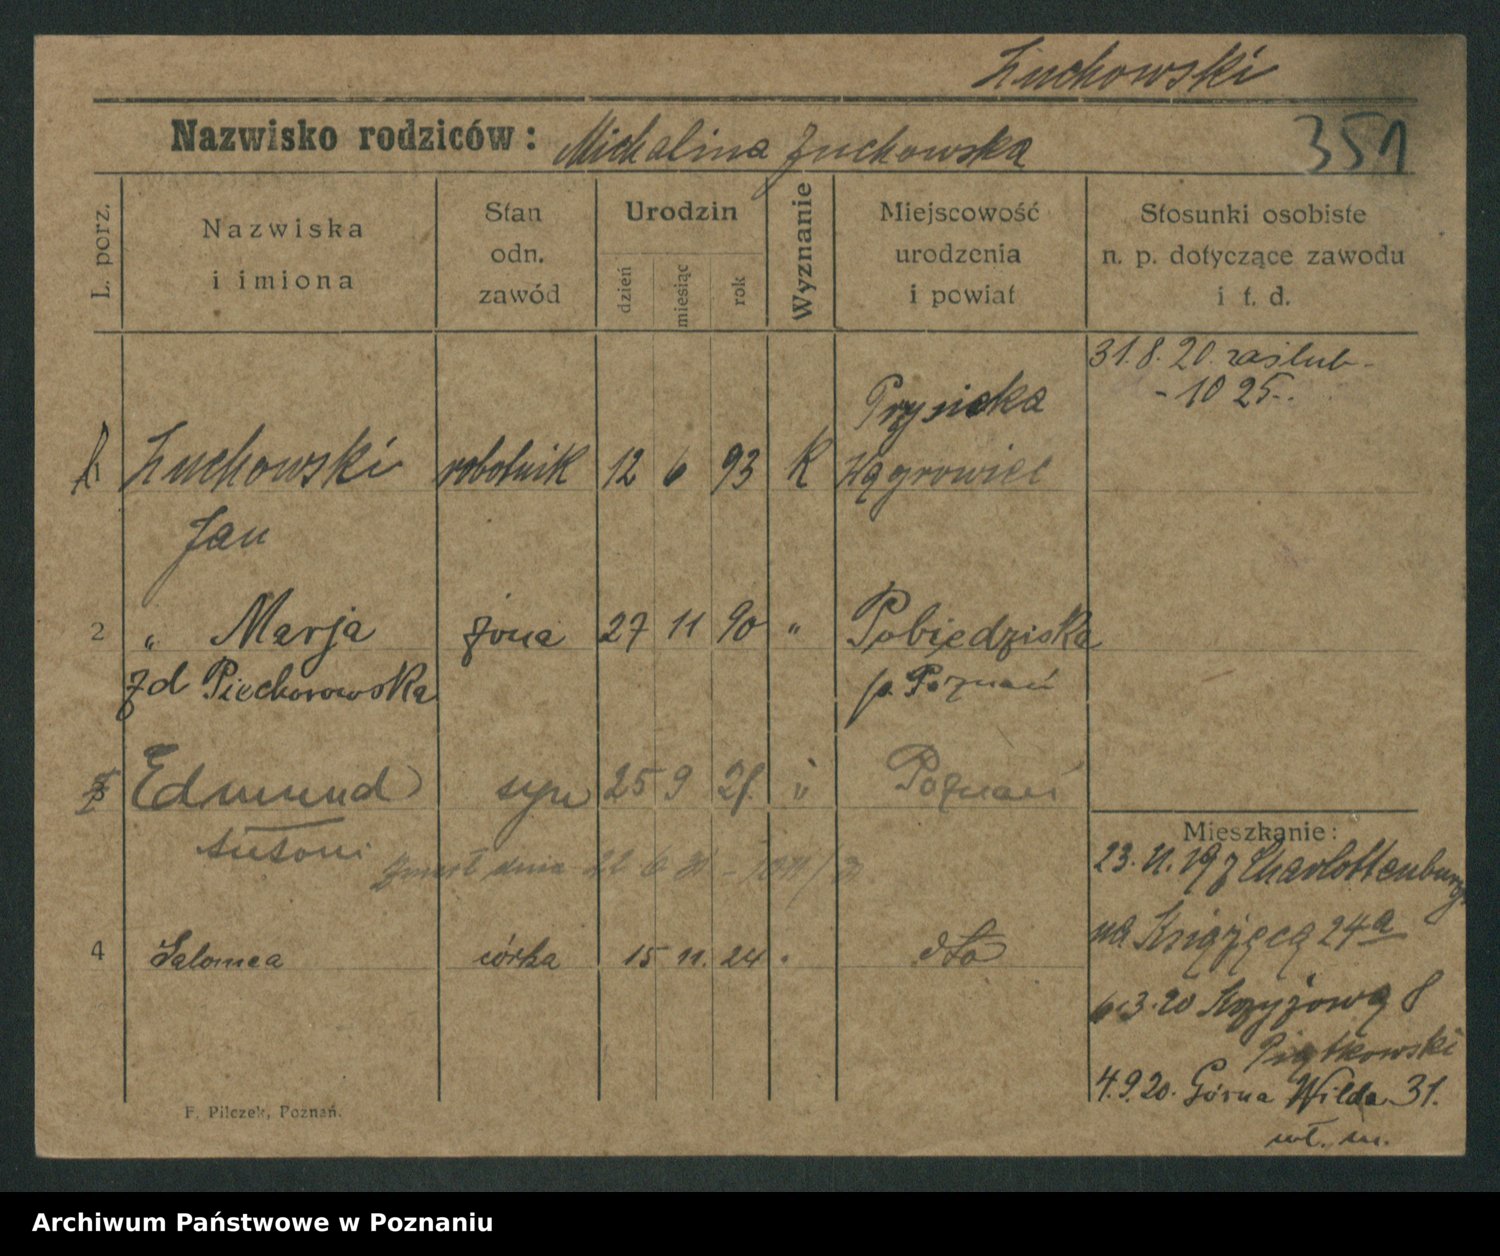 Żuchowski
Nazwisko rodziców: Michalina Żuchowska
351
L. porz.
Nazwiska
i imiona
Stan
odn.
zawód
Urodzin
dzień
miesiąc
rok
Wyznanie
Miejscowość
urodzenia
i powiat
Stosunki osobiste
n. p. dotyczące zawodu
i t. d.
31.8.20. zaślub.
- 10 25.
1 Żuchowski robotnik 12 6 93 K Prysieka
Wągrowiec
Jan
2 " Marja żona 27 11 90 " Pobiedziska
zd Piechorowska p. Poznań
3 Edmund syn 25 9 21. " Poznań
Antoni
dnia 22 6
4 Salomea córka 15 11. 24 " dto
Mieszkanie:
23.11.19 z Charlottenburga
na Książęcą 24a
6.3.20 Krzyżowa 8
Piątkowski
4.9.20. Górna Wilda 31.
wł. m.
F. Pilczek, Poznań.
Archiwum Państwowe w Poznaniu